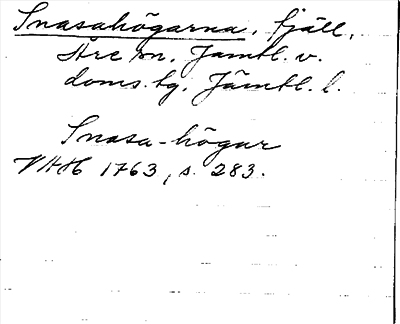 Snasahögarna, fjäll,
Åre sn, Jämtl. v.
doms.tg, Jämtl. l.
Snasa-högar
VAH 1763, s. 283.